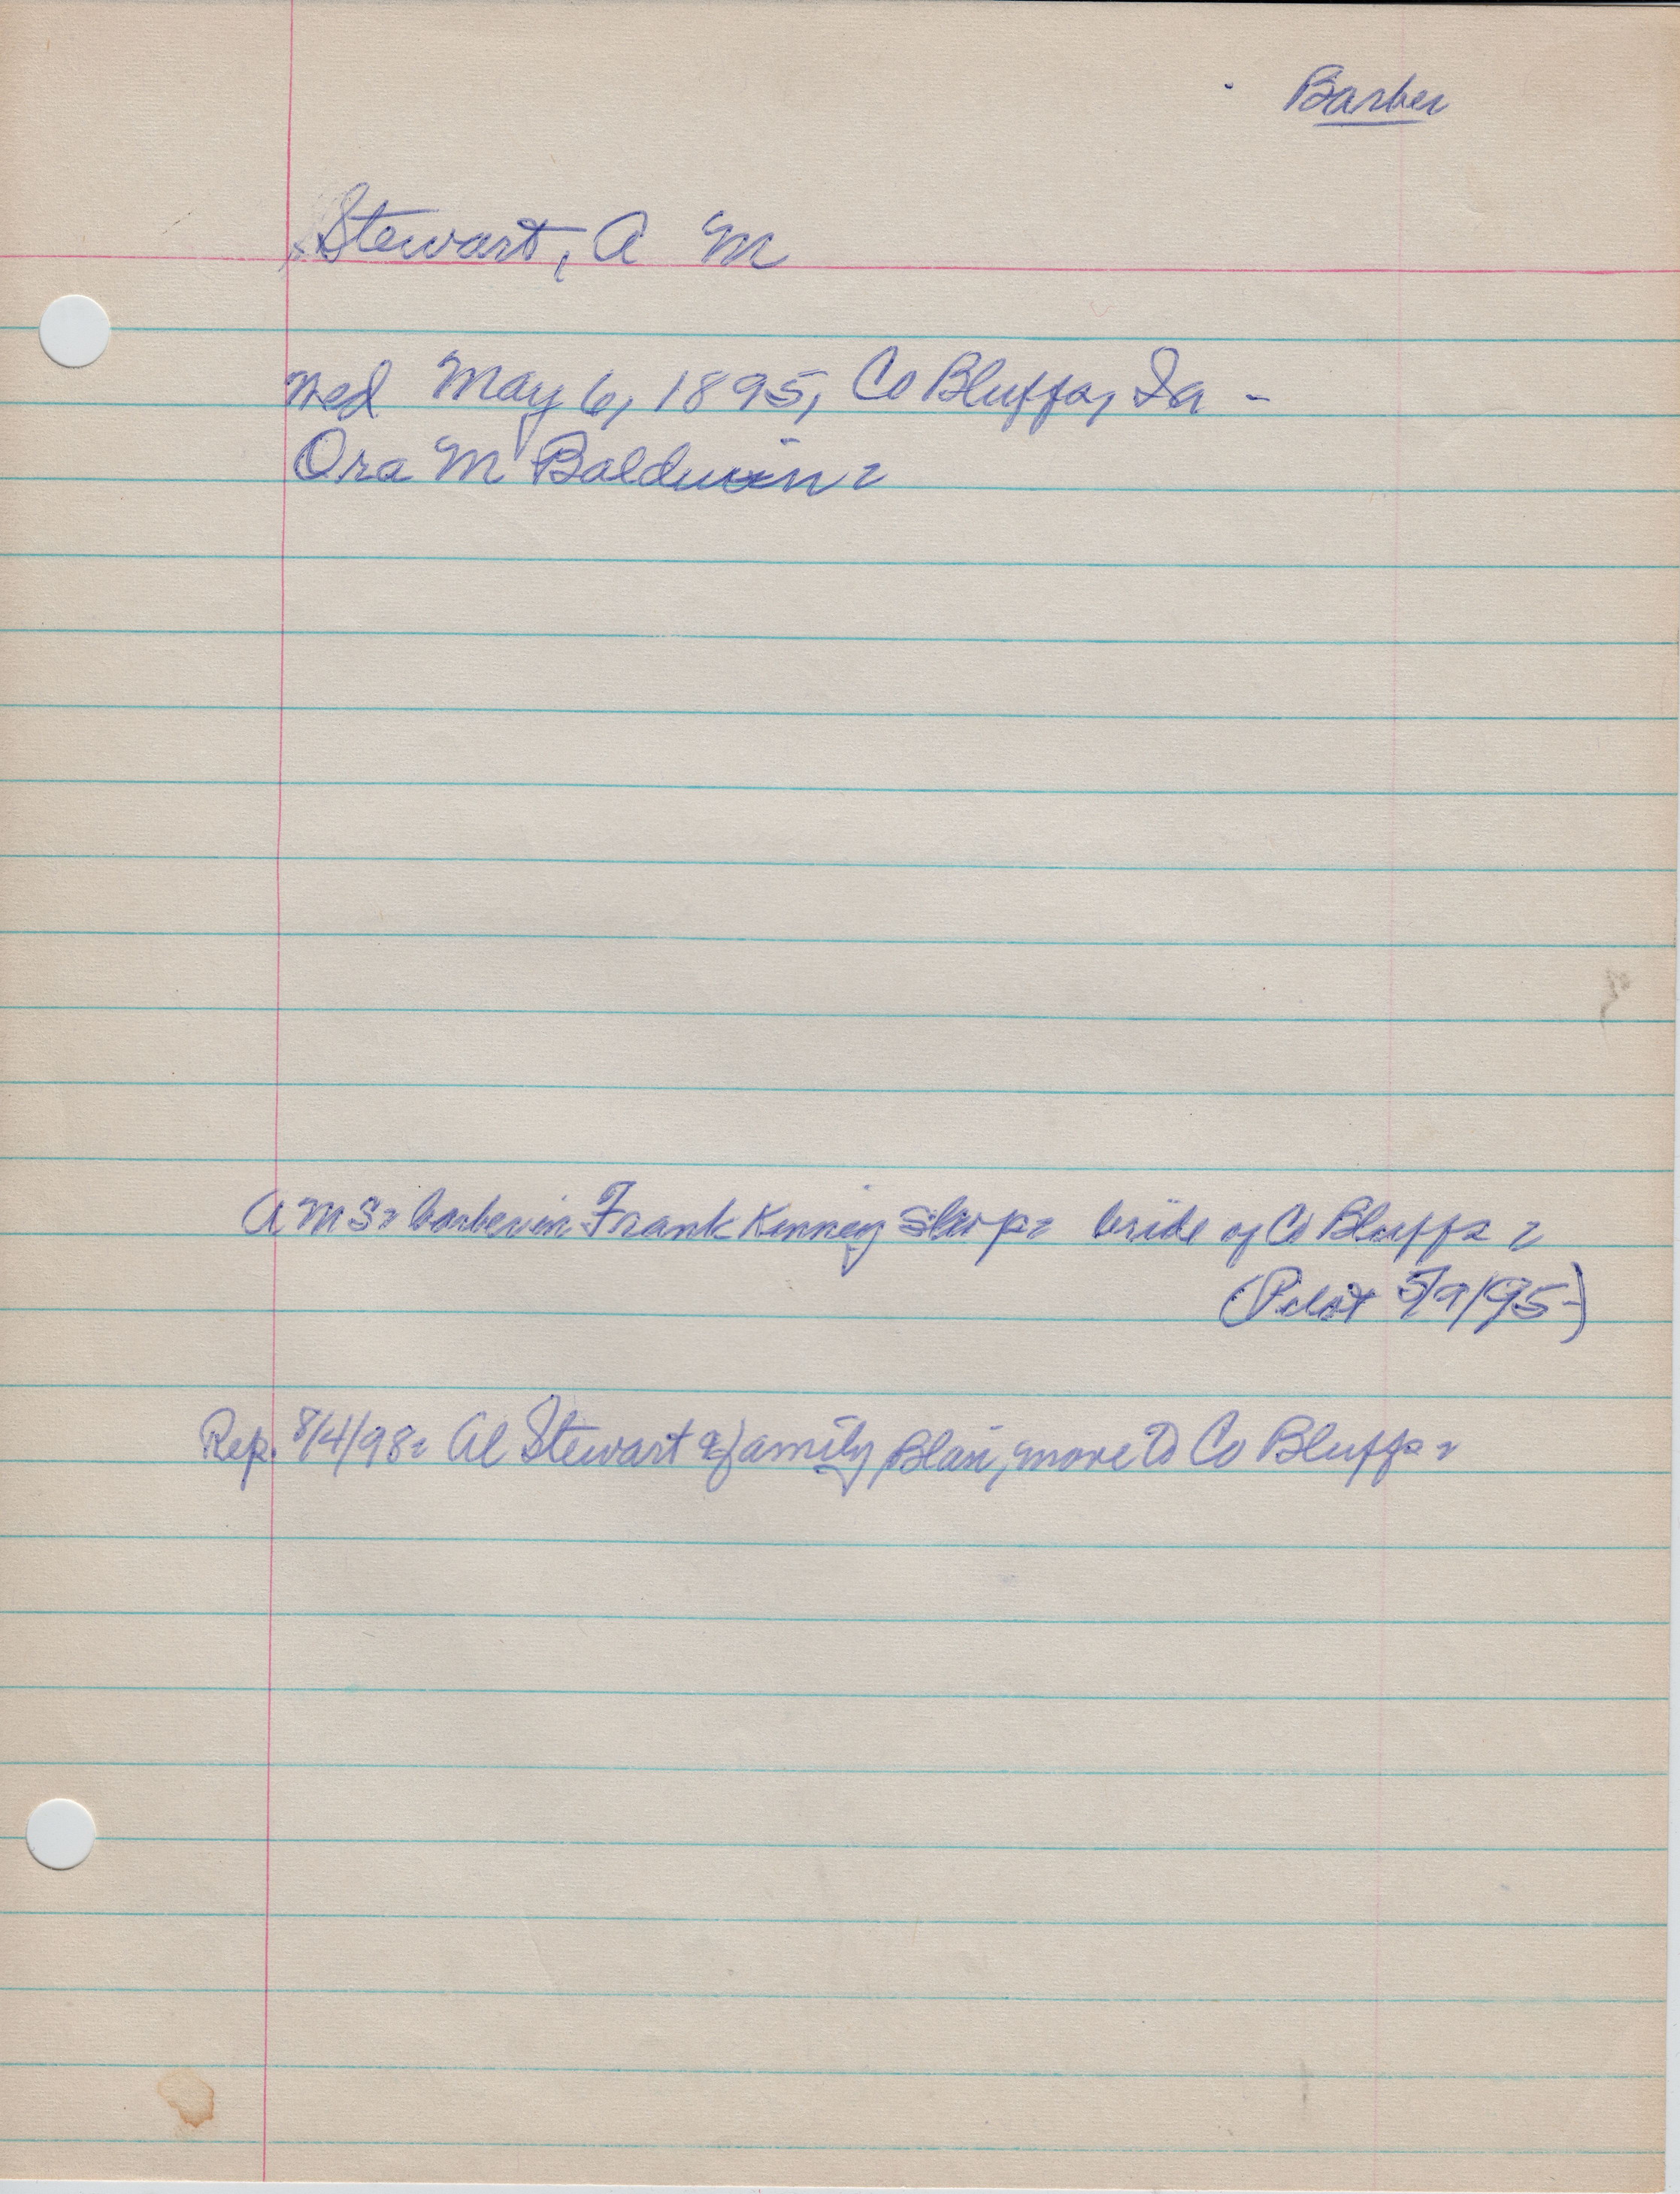 Barber
Stewart, A M
Wed May 6, 1895, Co Bluffs, Ia -
Ora M Baldwin -
A M S - barber in Frank Kenney shop - bride of Co Bluffs -
(Pilot 5/9/95)
Rep. 8/4/98 - Al Stewart & family, Blair, move to Co Bluffs -